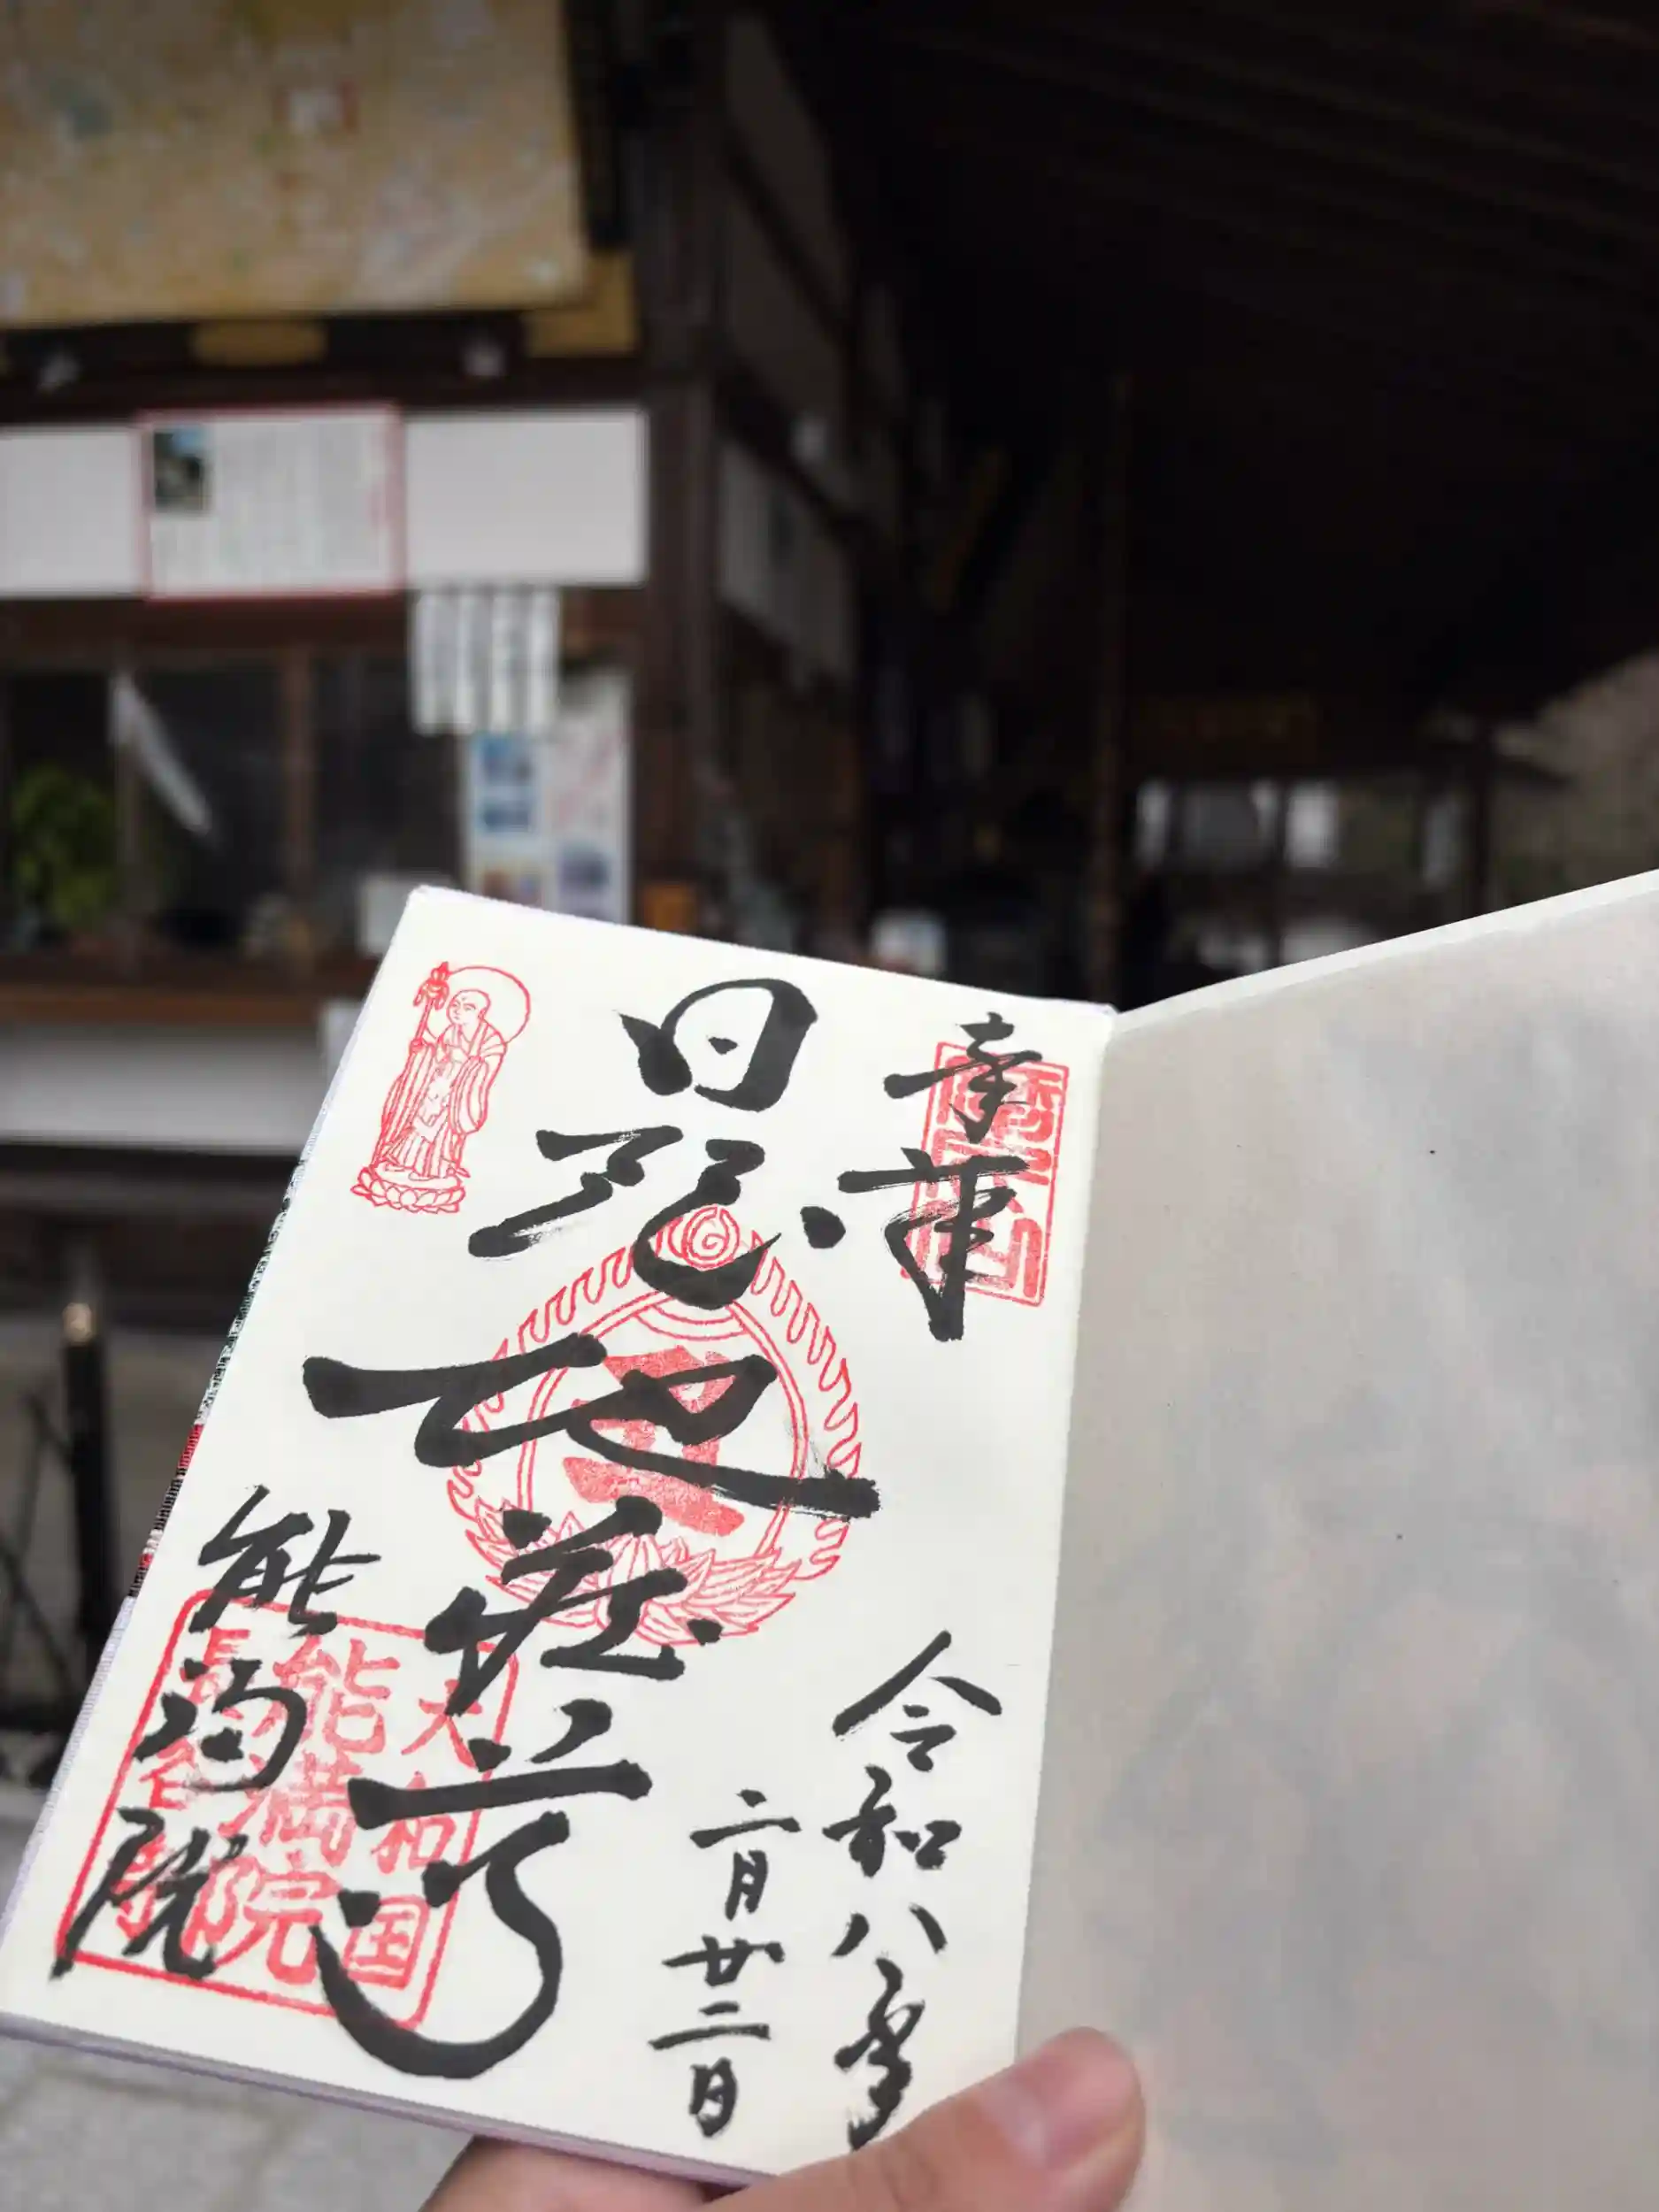 奉拝
令和八年
二月廿二日
日限地蔵尊
能満院
大和国
能満院
長谷寺